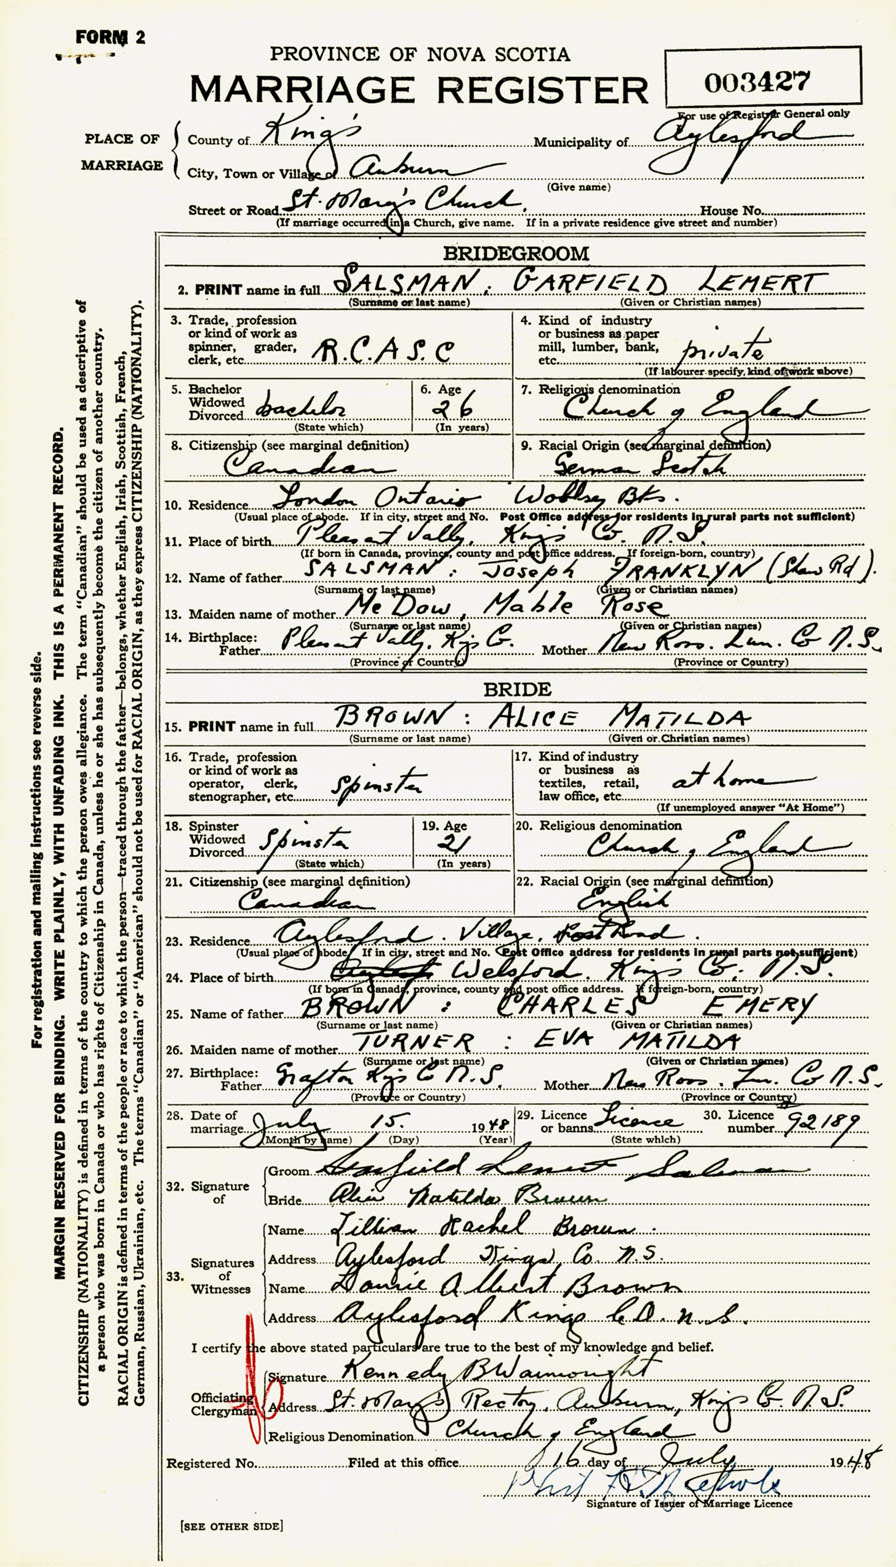 FORM 2
PROVINCE OF NOVA SCOTIA
MARRIAGE REGISTER
003427
For use of Registrar General only
PLACE OF MARRIAGE
County of King's Municipality of Aylesford
City, Town or Village of Auburn
(Give name)
Street or Road St. Mary's Church. House No.
(If marriage occurred in a Church, give name. If in a private residence give street and number)
BRIDEGROOM
2. PRINT name in full SALSMAN : GARFIELD LEMERT
(Surname or last name) (Given or Christian names)
3. Trade, profession or kind of work as spinner, grader, clerk, etc. R.C.A.S.C
4. Kind of industry or business as paper mill, lumber, bank, etc. private
(If labourer specify, kind of work above)
5. Bachelor Widowed Divorced bachelor
(State which)
6. Age 26
(In years)
7. Religious denomination Church of England
8. Citizenship (see marginal definition) Canadian
9. Racial Origin (see marginal definition) German Scotch
10. Residence London Ontario Bks.
(Usual place of abode. If in city, street and No. Post Office address for residents in rural parts not sufficient)
11. Place of birth Pleasant Vally, Kings Co. N.S.
(If born in Canada, province, county and post office address. If foreign-born, country)
12. Name of father SALSMAN : Joseph FRANKLYN (Shaw Rd).
(Surname or last name) (Given or Christian names)
13. Maiden name of mother McDow, Mable Rose
(Surname or last name) (Given or Christian names)
14. Birthplace: Father Pleasant Vally, Kgs Co. Mother New Ross. Lun. Co N.S.
(Province or Country) (Province or Country)
BRIDE
15. PRINT name in full BROWN : ALICE MATILDA
(Surname or last name) (Given or Christian names)
16. Trade, profession or kind of work as operator, clerk, stenographer, etc. Spinster
17. Kind of industry or business as textiles, retail, law office, etc. at home
(If unemployed answer "At Home")
18. Spinster Widowed Divorced Spinster
(State which)
19. Age 21
(In years)
20. Religious denomination Church of England
21. Citizenship (see marginal definition) Canadian
22. Racial Origin (see marginal definition) English
23. Residence Aylesford. Village,
(Usual place of abode. If in city, street and No. Post Office address for residents in rural parts not sufficient)
24. Place of birth Welsford. Kings Co. N.S.
(If born in Canada, province, county and post office address. If foreign-born, country)
25. Name of father BROWN : CHARLES EMERY
(Surname or last name) (Given or Christian names)
26. Maiden name of mother TURNER : EVA MATILDA
(Surname or last name) (Given or Christian names)
27. Birthplace: Father Grafton Kgs Co N.S. Mother New Ross. Lun. Co N.S.
(Province or Country) (Province or Country)
28. Date of marriage July 15. 1948
(Month by name) (Day) (Year)
29. Licence or banns Licence
(State which)
30. Licence number 92189
32. Signature of
Groom Garfield Lemert Salsman
Bride Alice Matilda Brown
33. Signatures of Witnesses
Name Lillian Rachel Brown.
Address Aylesford Kings Co. N.S.
Name Laurie Albert Brown
Address Aylesford Kings Co. N.S.
I certify the above stated particulars are true to the best of my knowledge and belief.
Officiating Clergyman
Signature Kennedy B Wainwright
Address St. Mary's Rectory, Auburn, Kings Co. N.S.
Religious Denomination Church of England
Registered No. Filed at this office 16 day of July 1948
Signature of Issuer of Marriage Licence
[SEE OTHER SIDE]
For registration and mailing instructions see reverse side.
MARGIN RESERVED FOR BINDING. WRITE PLAINLY, WITH UNFADING INK. THIS IS A PERMANENT RECORD.
CITIZENSHIP (NATIONALITY) is defined in terms of the country to which the person owes allegiance. The term "Canadian" should be used as descriptive of
a person who was born in Canada or who has rights of Citizenship in Canada, unless he or she has subsequently become the citizen of another country.
RACIAL ORIGIN is defined in terms of the people or race to which the person—traced through the father—belongs, whether English, Irish, Scottish, French,
German, Russian, Ukrainian, etc. The terms "Canadian" or "American" should not be used for RACIAL ORIGIN, as they express CITIZENSHIP (NATIONALITY).